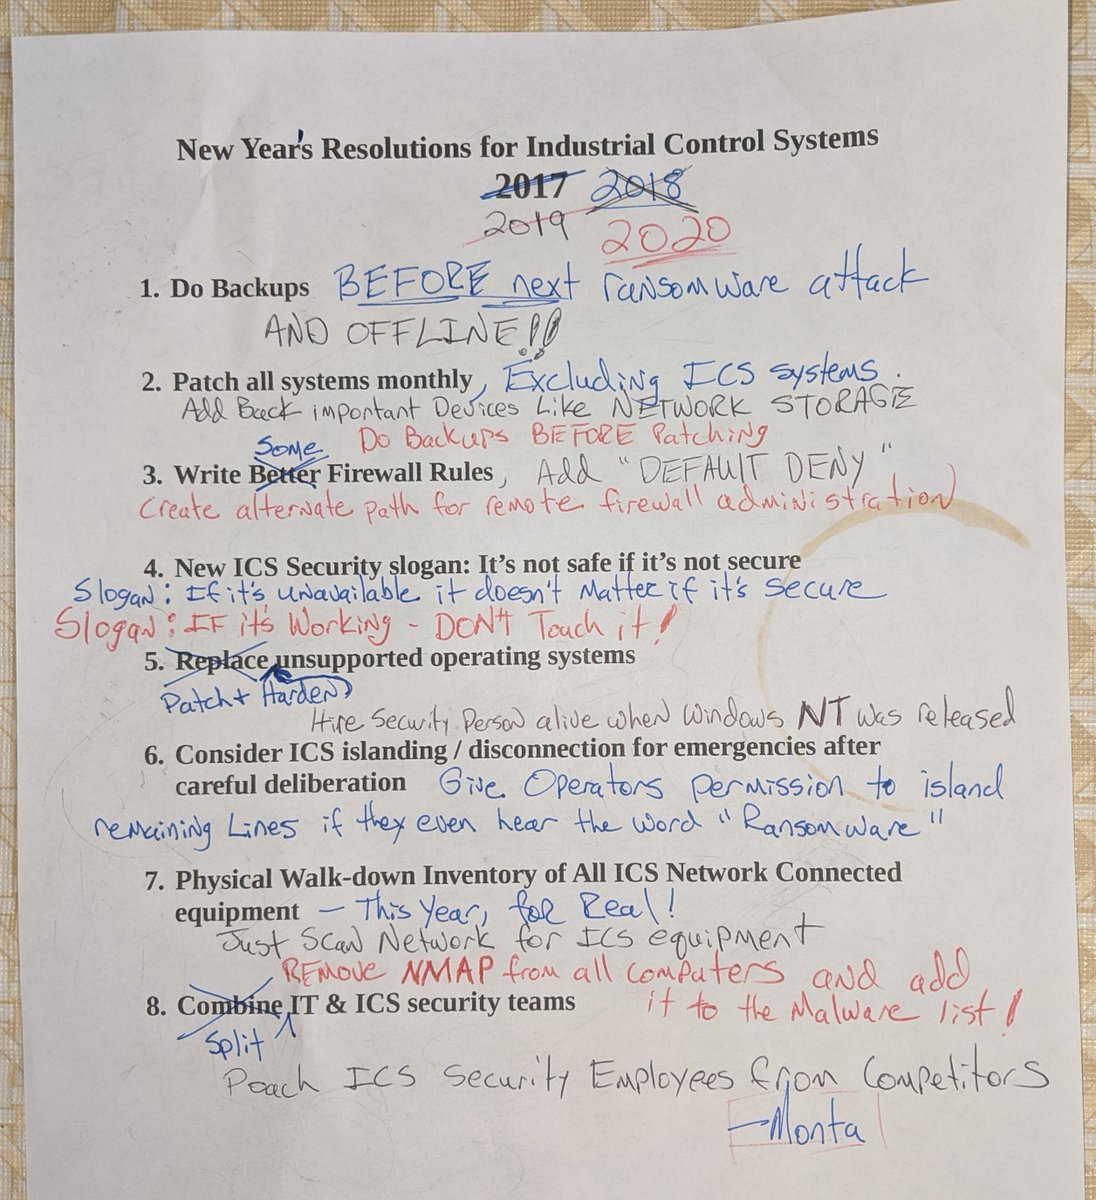 New Year's Resolutions for Industrial Control Systems
2017 2018
2019 2020
1. Do Backups BEFORE next ransomware attack
AND OFFLINE!!!
2. Patch all systems monthly, Excluding ICS systems.
Add Back important Devices Like NETWORK STORAGE
Do Backups BEFORE Patching
Some
3. Write Better Firewall Rules, Add "DEFAULT DENY"
Create alternate path for remote firewall administration
4. New ICS Security slogan: It's not safe if it's not secure
Slogan: If it's unavailable it doesn't matter if it's secure
Slogan: IF it's Working - DON'T Touch it!
5. Replace unsupported operating systems
Patch + Harden
Hire Security Person alive when Windows NT was released
6. Consider ICS islanding / disconnection for emergencies after
careful deliberation Give Operators permission to island
remaining Lines if they even hear the word "Ransomware"
7. Physical Walk-down Inventory of All ICS Network Connected
equipment - This Year, for Real!
Just Scan Network for ICS equipment
REMOVE NMAP from all computers and add
it to the Malware list!
8. Combine IT & ICS security teams
Split
Poach ICS Security Employees from Competitors
-Monta